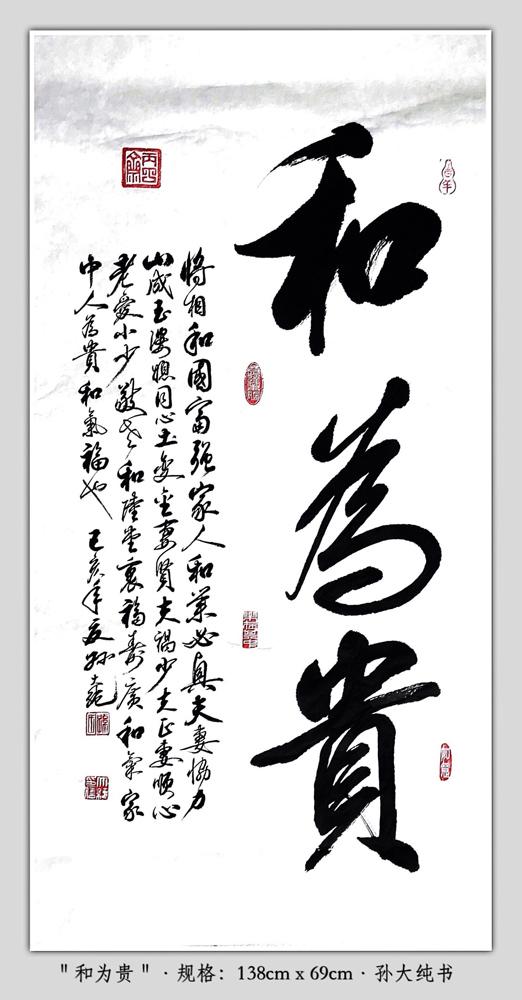 和為貴
將相和國富強家人和業必興夫妻協力
山成玉婆媳同心土變金妻賢夫禍少夫正妻順心
老愛小少敬老和睦堂裏福壽廣和氣家
中人為貴和氣福也 己亥年夏孙
"和为贵"·规格：138cm x 69cm·孙大纯书